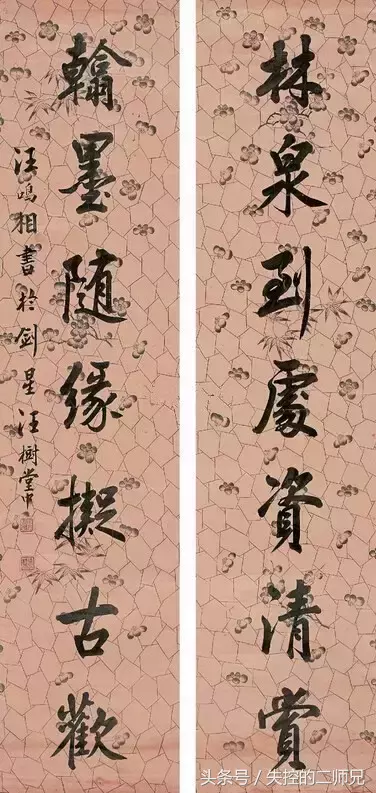 林泉到處資清賞
翰墨随緣擬古歡
汪鳴相書於劍星汪樹堂中
头条号／失控的二师兄